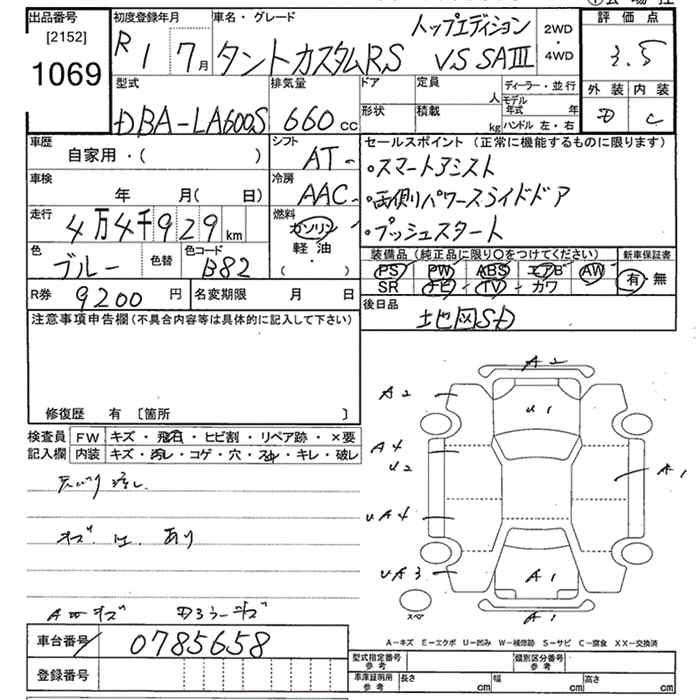 出品番号 [2152] 1069
初度登録年月 R 1 7月
車名・グレード タントカスタムRS トップエディション VS SAⅢ
2WD・4WD
評価点 3.5
外装 D 内装 C
型式 DBA-LA600S
排気量 660 cc
ドア 定員 人
形状 積載 kg
ディーラー・並行
モデル年式 年
ハンドル 左・右
車歴 自家用・( )
シフト AT
車検 年 月( 日)
冷房 AAC
走行 4万4千929 km
燃料 ガソリン 軽油 ( ・ )
色 ブルー 色替 色コード B82
R券 9200 円 名変期限 月 日
セールスポイント (正常に機能するものに限ります)
・スマートアシスト
・両側パワースライドドア
・プッシュスタート
装備品 (純正品に限り○をつけてください) 新車保証書
PS PW ABS エアB AW 有・無
SR ナビ TV カワ
後日品 地図SD
注意事項申告欄 (不具合内容等は具体的に記入して下さい)
修復歴 有 〔箇所 〕
検査員 FW キズ・飛石・ヒビ割・リペア跡・×要
記入欄 内装 キズ・汚レ・コゲ・穴・スレ・キレ・破レ
キズ 凹 あり
A2
A2
U1
A4
U2
A1
UA4
UA3
A1
スペア
A1
A-キズ E-エクボ U-凹み W-補修跡 S-サビ C-腐食 XX-交換済
車台番号 0785658
登録番号
型式指定番号 参考 類別区分番号 参考
車庫証明用 参考 長さ cm 幅 cm 高さ cm